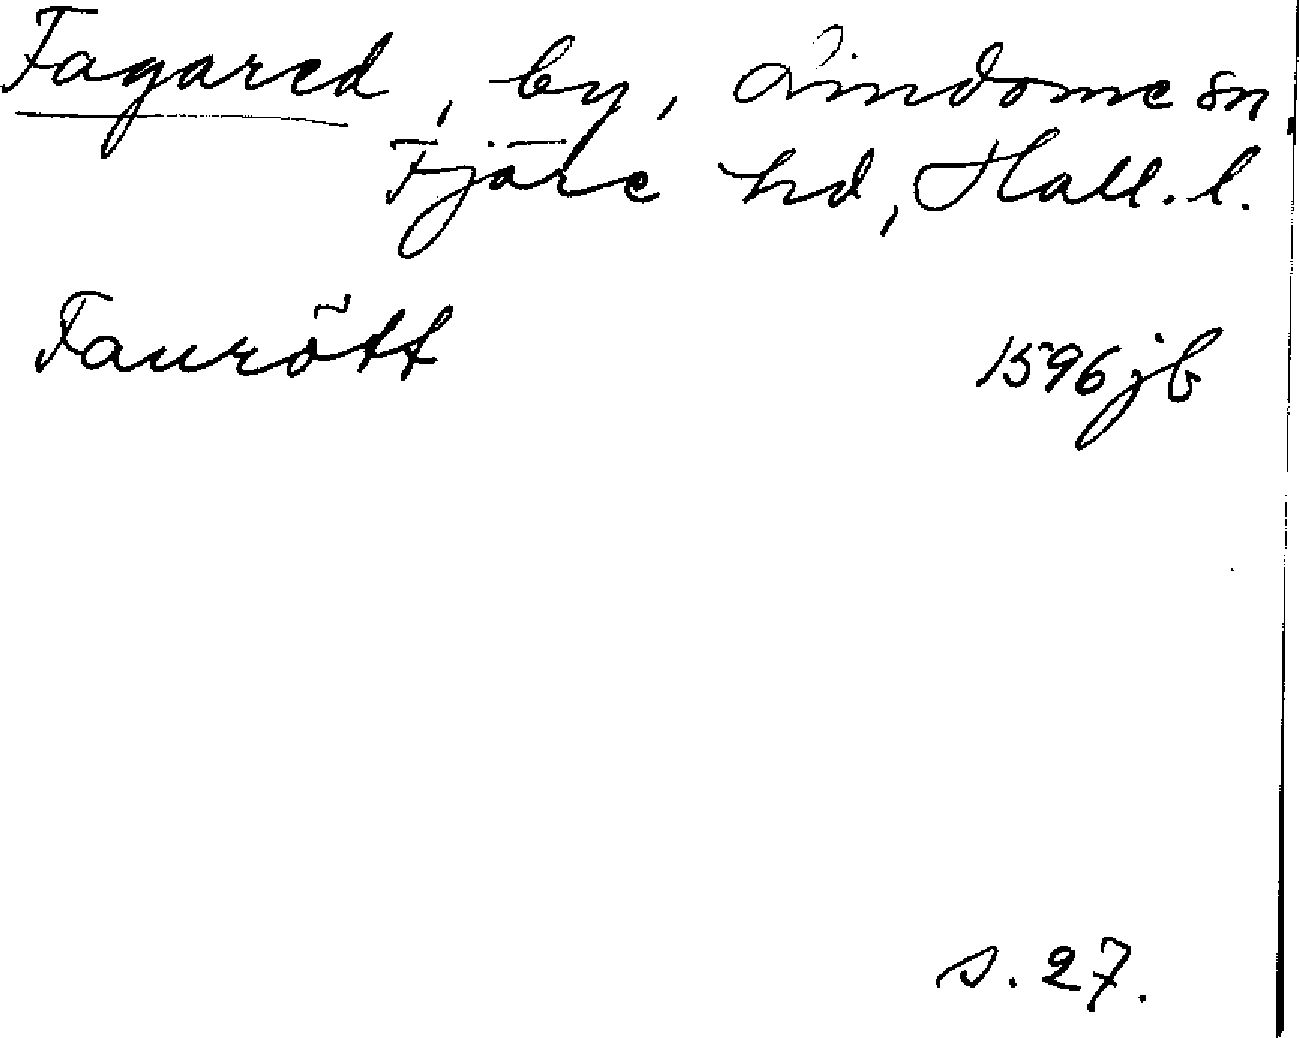 Fagared, by, Lindome sn
Fjäre hd, Hall. l.
Faurött 1596 jb
s. 27.